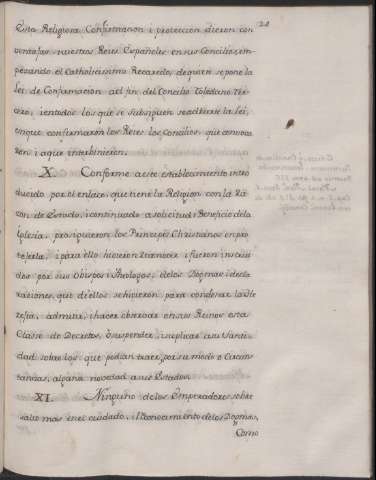 20
Esta Religiosa Confirmacion i proteccion dieron con
ventajas nuestros Reies Españoles en sus Concilios, em-
pezando el Catholicissimo Recaredo, de quien se pone la
Lei de Confirmacion al fin del Concilio Toledano Ter-
cero, i en todos los que se subsiguen se advierte la Lei,
en que confirmaron los Reies los Concilios que convoca-
ron i a que intervinieron.
X. Conforme a este establecimiento intro-
ducido por el enlace, que tiene la Religion con la Ra-
zon de Estado, i continuado a solicitud i Beneficio de la
Iglesia, prosiguieron los Principes Christianos en pro-
tejerla, i para ello hicieron i fueron instrui-
dos por sus Obispos i Theologos, de los Dogmas i decla-
raciones, que de ellos se hicieron para condenar la He-
regia, admitir, i hacer observar en sus Reinos esta
Clase de Decretos, ò suspender, i suplicar a su Santi-
dad sobre los que podian traer, por su modo o Circuns-
tancias, alguna novedad a sus Estados.
XI. Ninguno de los Emperadores sobre
salio mas en el cuidado, i conocimiento de los Dogmas,
Como